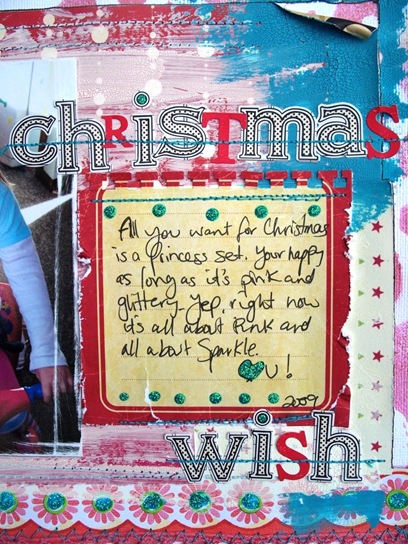 christmas
All you want for Christmas
is a Princess set. Your happy
as long as it's pink and
glittery. Yep, right now
it's all about Pink and
all about Sparkle.
U!
2009
wish